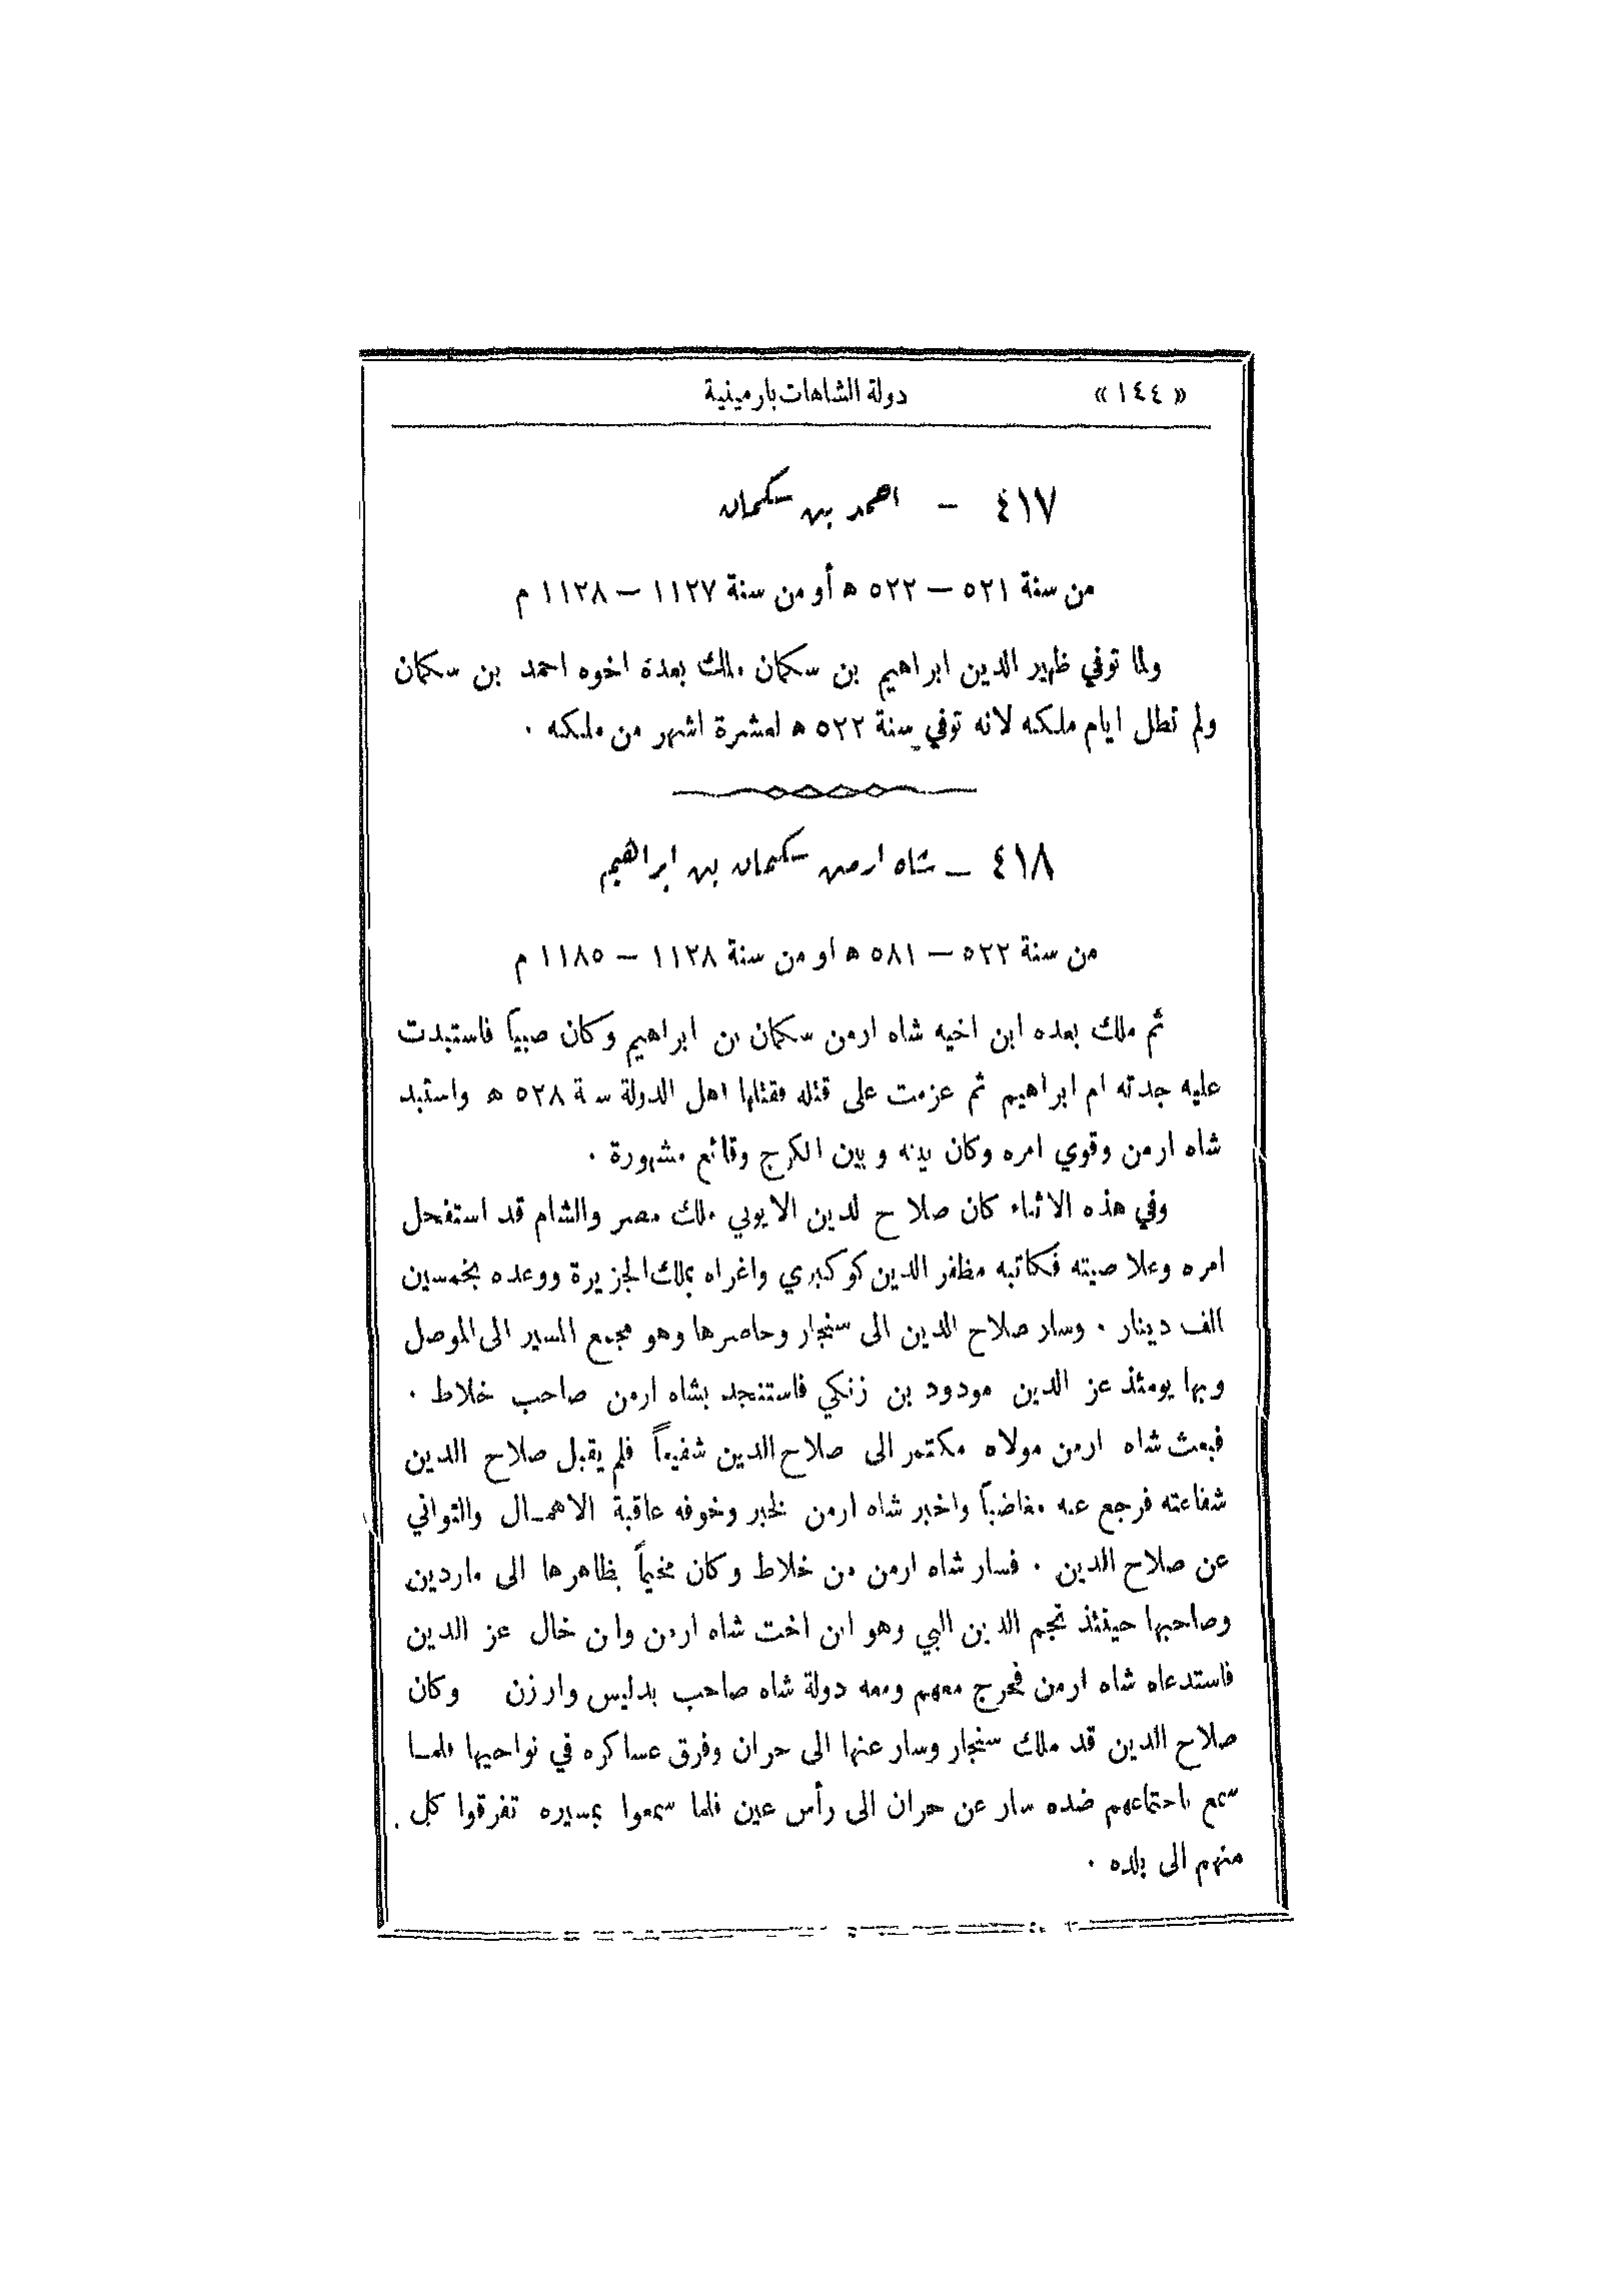 «١٤٤» دولة الشاهات بارمينية
٤١٧ - احمد بن سكمان
من سنة ٥٢١ — ٥٢٢ ه أو من سنة ١١٢٧ — ١١٢٨ م
ولما توفي ظهير الدين ابراهيم بن سكمان ملك بعده اخوه احمد بن سكمان
ولم تطل ايام ملكه لانه توفي سنة ٥٢٢ ه لعشرة اشهر من ملكه ٠
٤١٨ — شاه ارمن سكمان بن ابراهيم
من سنة ٥٢٢ — ٥٨١ ه او من سنة ١١٢٨ — ١١٨٥ م
ثم ملك بعده ابن اخيه شاه ارمن سكمان بن ابراهيم وكان صبياً فاستبدت
عليه جدته ام ابراهيم ثم عزمت على قتله فقتلها اهل الدولة سنة ٥٢٨ ه واستبد
شاه ارمن وقوي امره وكان بينه وبين الكرج وقائع مشهورة ٠
وفي هذه الاثناء كان صلاح الدين الايوبي ملك مصر والشام قد استفحل
امره وعلا صيته فكاتبه مظفر الدين كوكبري واغراه بملك الجزيرة ووعده بخمسين
الف دينار ٠ وسار صلاح الدين الى سنجار وحاصرها وهو مجمع المسير الى الموصل
وبها يومئذ عز الدين مودود بن زنكي فاستنجد بشاه ارمن صاحب خلاط ٠
فبعث شاه ارمن مولاه مكتمر الى صلاح الدين شفيعاً فلم يقبل صلاح الدين
شفاعته فرجع عنه مغاضباً واخبر شاه ارمن الخبر وخوفه عاقبة الاهمـال والتواني
عن صلاح الدين ٠ فسار شاه ارمن من خلاط وكان مخيماً بظاهرها الى ماردين
وصاحبها حينئذ نجم الدين البي وهو ابن اخت شاه ارمن وابن خال عز الدين
فاستدعاه شاه ارمن فخرج معهم ومعه دولة شاه صاحب بدليس وارزن وكان
صلاح الدين قد ملك سنجار وسار عنها الى حران وفرق عساكره في نواحيها فلمـا
سمع باجتماعهم ضده سار عن حران الى رأس عين فلما سمعوا بمسيره تفرقوا كل
منهم الى بلده ٠